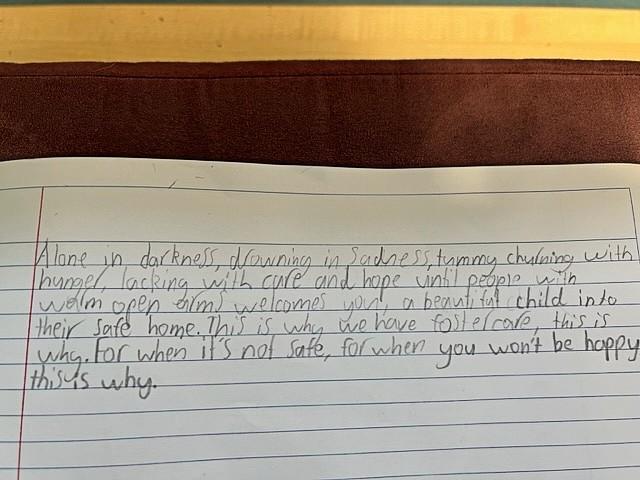 Alone in darkness, drowning in sadness, tummy churning with
hunger, lacking with care and hope until people with
warm open arms welcomes you, a beautiful child into
their safe home. This is why we have fostercare, this is
why. For when it's not safe, for when you won't be happy
this is why.